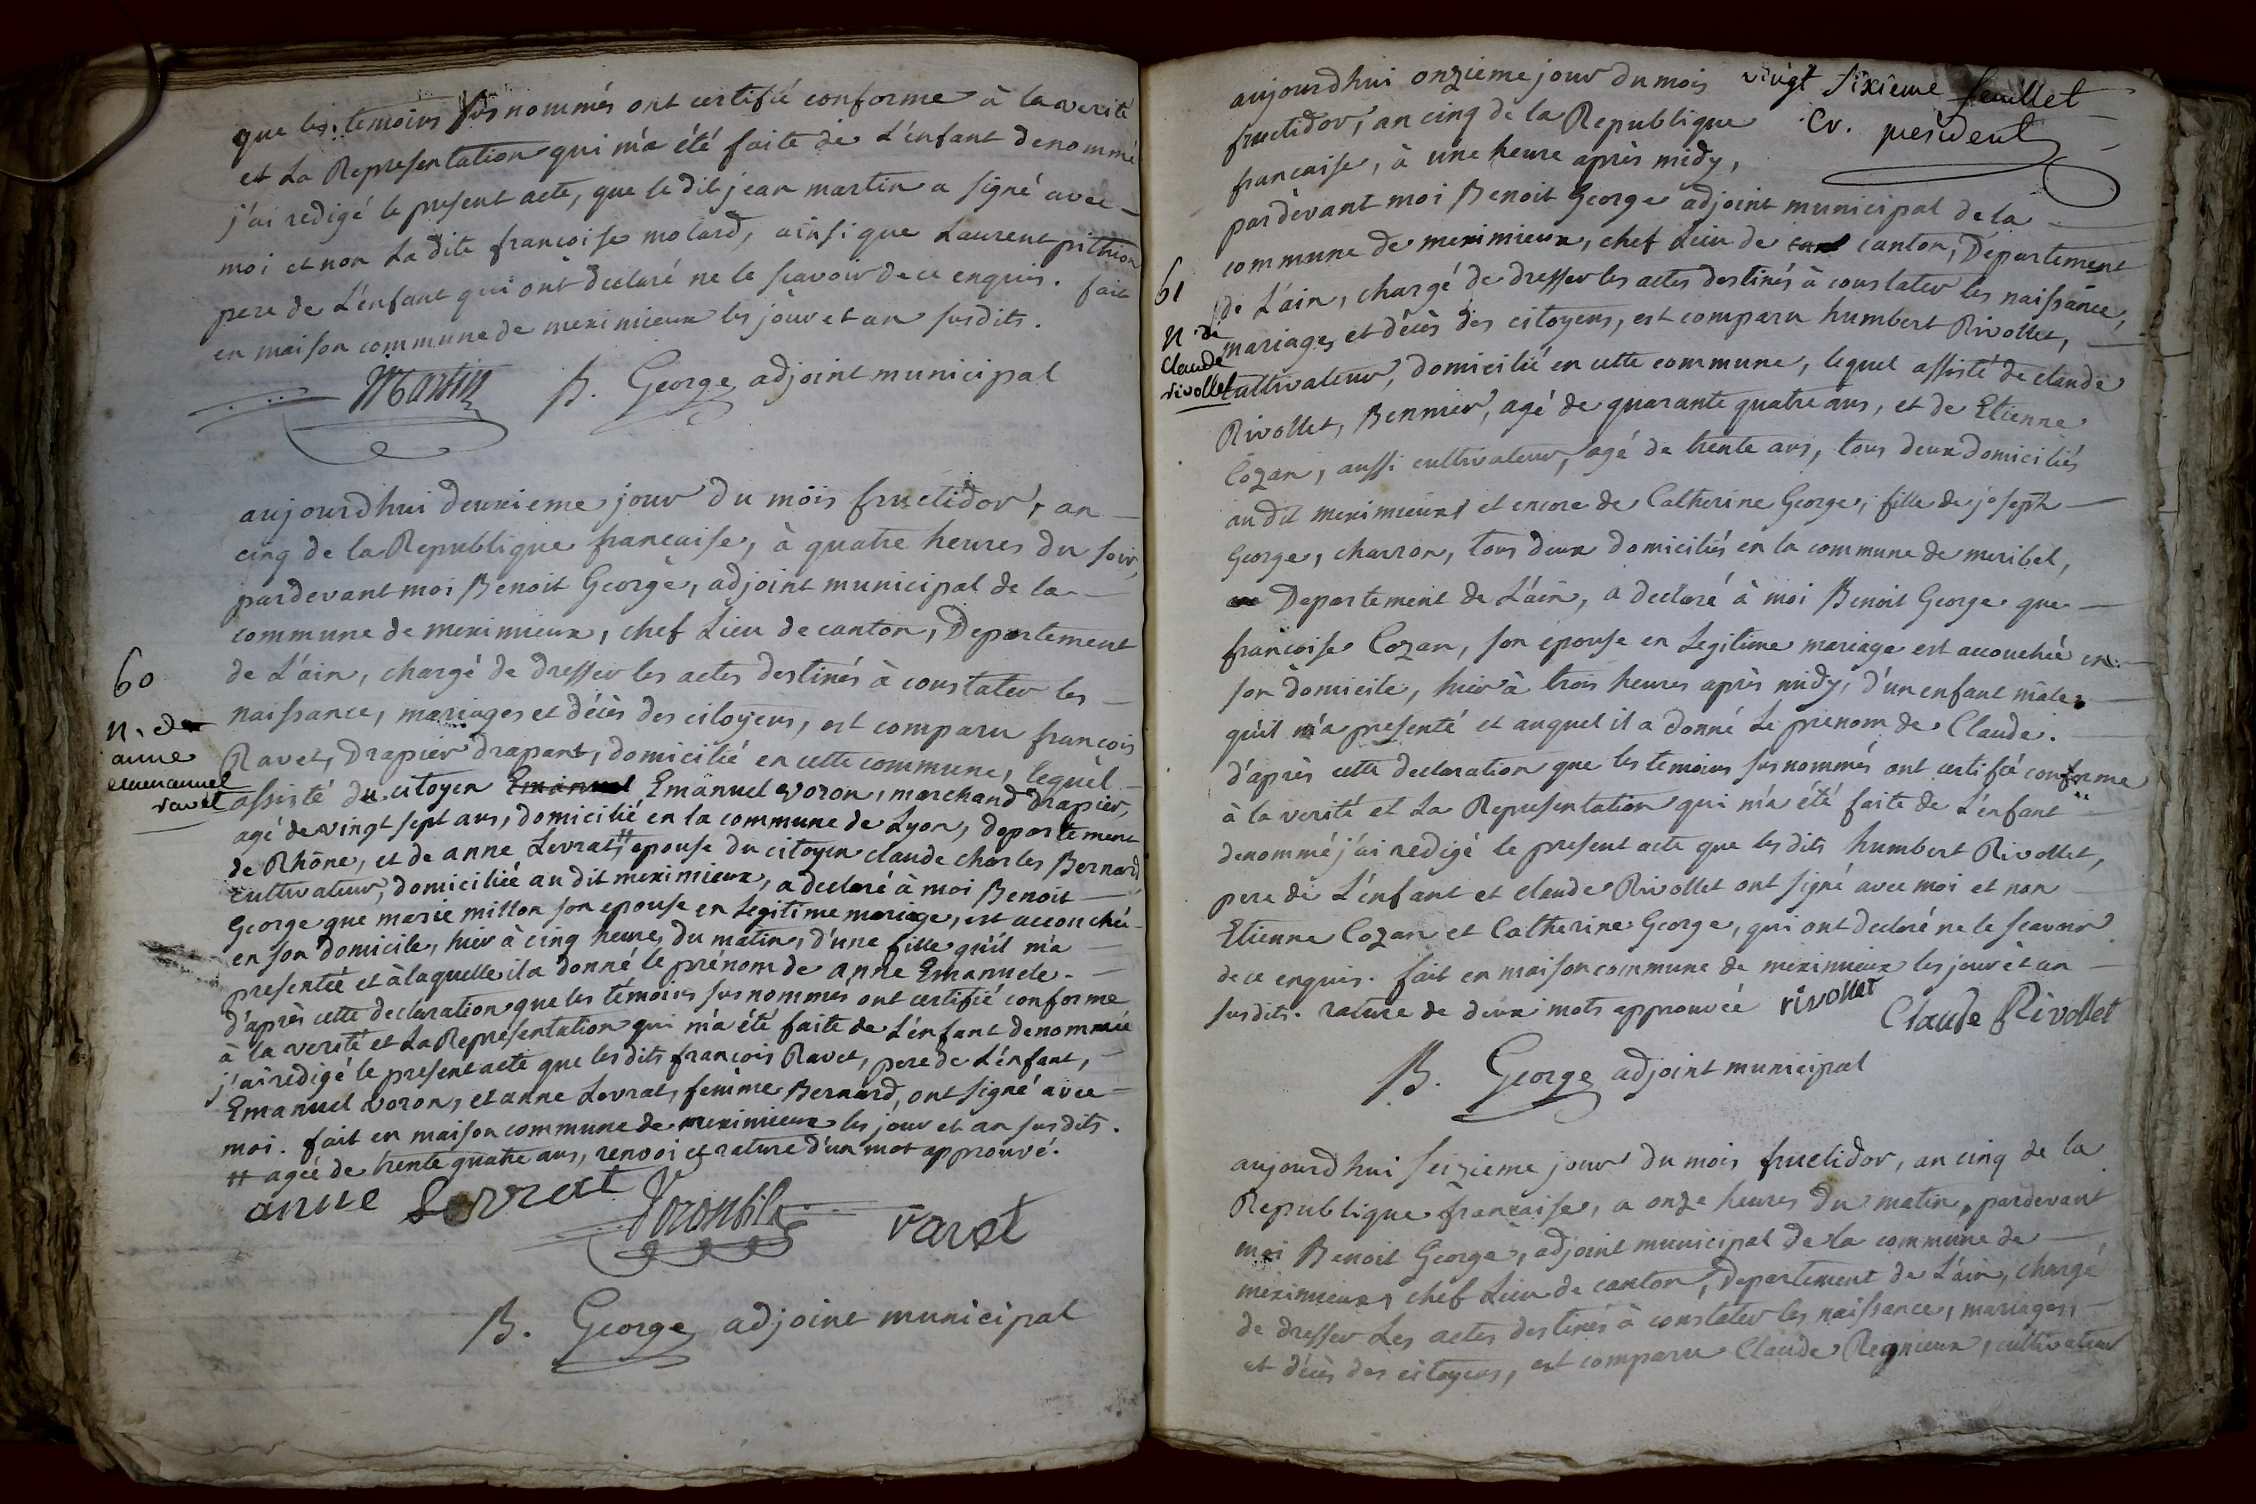 que les temoins sus nommés ont certifié conforme à la verité
et La Representation qui m'a été faite de L'enfant denommé
j'ai redigé le present acte, que le dit jean martin a signé avec
moi et non La dite françoise molard, ainsi que Laurent pithion
pere de L'enfant qui ont declaré ne le scavoir de ce enquis. fait
en maison commune de meximieux les jour et an susdits.
Martin B. George adjoint municipal
aujourdhui deuxieme jour du mois fructidor, an
cinq de la Republique francaise, à quatre heures du soir,
pardevant moi Benoit George, adjoint municipal de la
commune de meximieux, chef Lieu de canton, Departement
de L'ain, chargé de dresser les actes destinés à constater les
naissance, mariages et décès des citoyens, est comparu françois
Ravet, Drapier drapant, domicilié en cette commune, lequel
assisté du citoyen Emanuel Emanuel voron, marchand Drapier,
agé de vingt sept ans, domicilié en la commune de Lyon, departement
de Rhône, et de anne Levrat, # epouse du citoyen claude charles Bernard
cultivateur, domiciliée au dit meximieux, a declaré à moi Benoit
George que marie millon son epouse en Legitime mariage, est accouchée
en son domicile, hier à cinq heures du matin, d'une fille qu'il m'a
presentée et à laquelle il a donné le prénom de anne Emanuele.
d'après cette declaration que les temoins sus nommés ont certifié conforme
à la verité et La Representation qui m'a été faite de L'enfant denommée
j'ai redigé le present acte que les dits françois Ravet, pere de L'enfant,
Emanuel voron, et anne Levrat, femme Bernard, ont signé avec
moi. fait en maison commune de meximieux les jour et an susdits.
# agée de trente quatre ans, renvoi et rature d'un mot approuvé.
anne Levrat Voron fils ravet
B. George adjoint municipal
60
n. de
anne
emmanuel
ravet
vingt sixieme feuillet
Cr. president
aujourdhui onzieme jour du mois
fructidor, an cinq de la Republique
francaise, à une heure après midy,
pardevant moi Benoit George adjoint municipal de la
commune de meximieux, chef Lieu de canton, Departement
de L'ain, chargé de dresser les actes destinés à constater les naissance,
mariages et décès des citoyens, est comparu humbert Rivollet,
cultivateur, domicilié en cette commune, lequel assisté de claude
Rivollet, Bennier, agé de quarante quatre ans, et de Etienne
Cozan, aussi cultivateur, agé de trente ans, tous deux domiciliés
au dit meximieux et encore de Catherine George, fille de joseph
George, charron, tous deux domiciliés en la commune de meribel,
Departement de L'ain, a declaré à moi Benoit George que
françoise Cozan, son epouse en Legitime mariage est accouchée en
son domicile, hier à trois heures après midy, d'un enfant mâle
qu'il m'a presenté et auquel il a donné Le prenom de Claude.
d'après cette declaration que les temoins sus nommés ont certifié conforme
à la verité et La Representation qui m'a été faite de L'enfant
denommé j'ai redigé le present acte que les dits humbert Rivollet,
pere de L'enfant et claude Rivollet ont signé avec moi et non
Etienne Cozan et Catherine George, qui ont declaré ne le scavoir
de ce enquis. fait en maison commune de meximieux les jour et an
susdits. rature de deux mots approuvée rivollet Claude Rivollet
B. George adjoint municipal
61
n. de
Claude
rivollet
aujourdhui seizieme jour du mois fructidor, an cinq de la
Republique francaise, a onze heures du matin, pardevant
moi Benoit George, adjoint municipal de la commune de
meximieux, chef Lieu de canton, Departement de L'ain, chargé
de dresser Les actes destinés à constater les naissance, mariages,
et décès des citoyens, est comparu Claude Regnieux, cultivateur